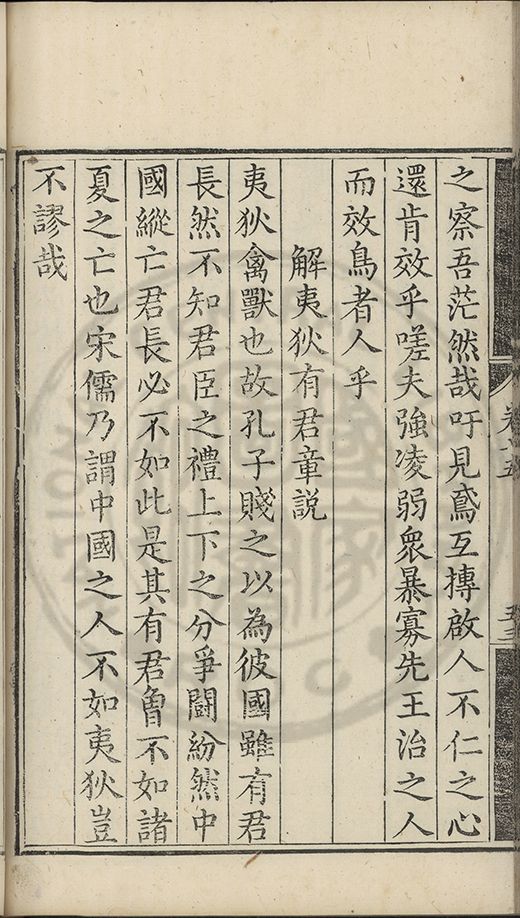 之察吾茫然哉吁見鳶互搏啟人不仁之心
還肯效乎嗟夫強凌弱眾暴寡先王治之人
而效鳥者人乎
解夷狄有君章説
夷狄禽獸也故孔子賤之以為彼國雖有君
長然不知君臣之禮上下之分爭鬬紛然中
國縱亡君長必不如此是其有君曾不如諸
夏之亡也宋儒乃謂中國之人不如夷狄豈
不謬哉